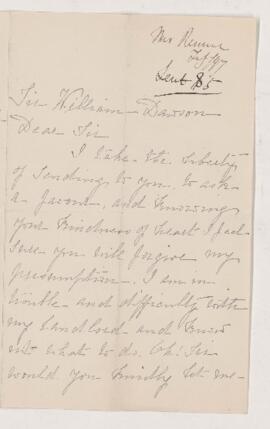 Mrs
Sent $5
Sir William Dawson
Dear Sir
I take the liberty
of sending to you to ask
a favour, and knowing
your kindness of heart I feel
sure you will forgive my
presumption. I am in
trouble and difficulty with
my landlord and know
not what to do. Oh! Sir
would you kindly let me